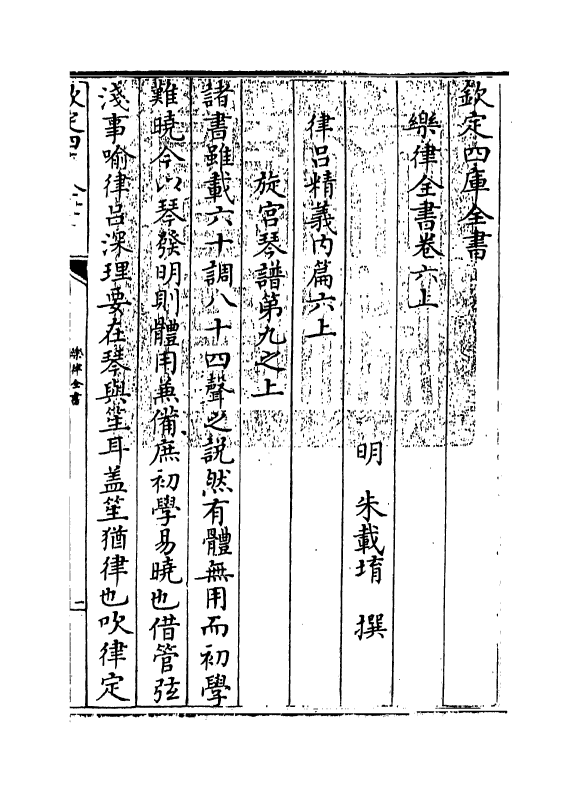 欽定四庫全書
樂律全書卷六上
明 朱載堉 撰
律呂精義内篇六上
旋宫琴譜第九之上
諸書雖載六十調八十四聲之説然有體無用而初學
難曉今以琴發明則體用兼備庶初學易曉也借管弦
淺事喻律呂深理要在琴與笙耳盖笙猶律也吹律定
欽定四
樂律全書